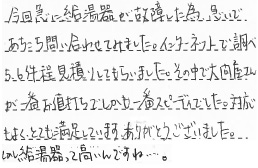 今回急に給湯器が故障した為、急いで
あちこち問い合わせてみました。インターネットで調べ
5、6件程見積りしてもらいました。その中で大向屋さん
が一番お値打ちでしかも一番スピーディでした。対応
もよく、とても満足しています。ありがとうございました。
しかし給湯器って高いんですね…。